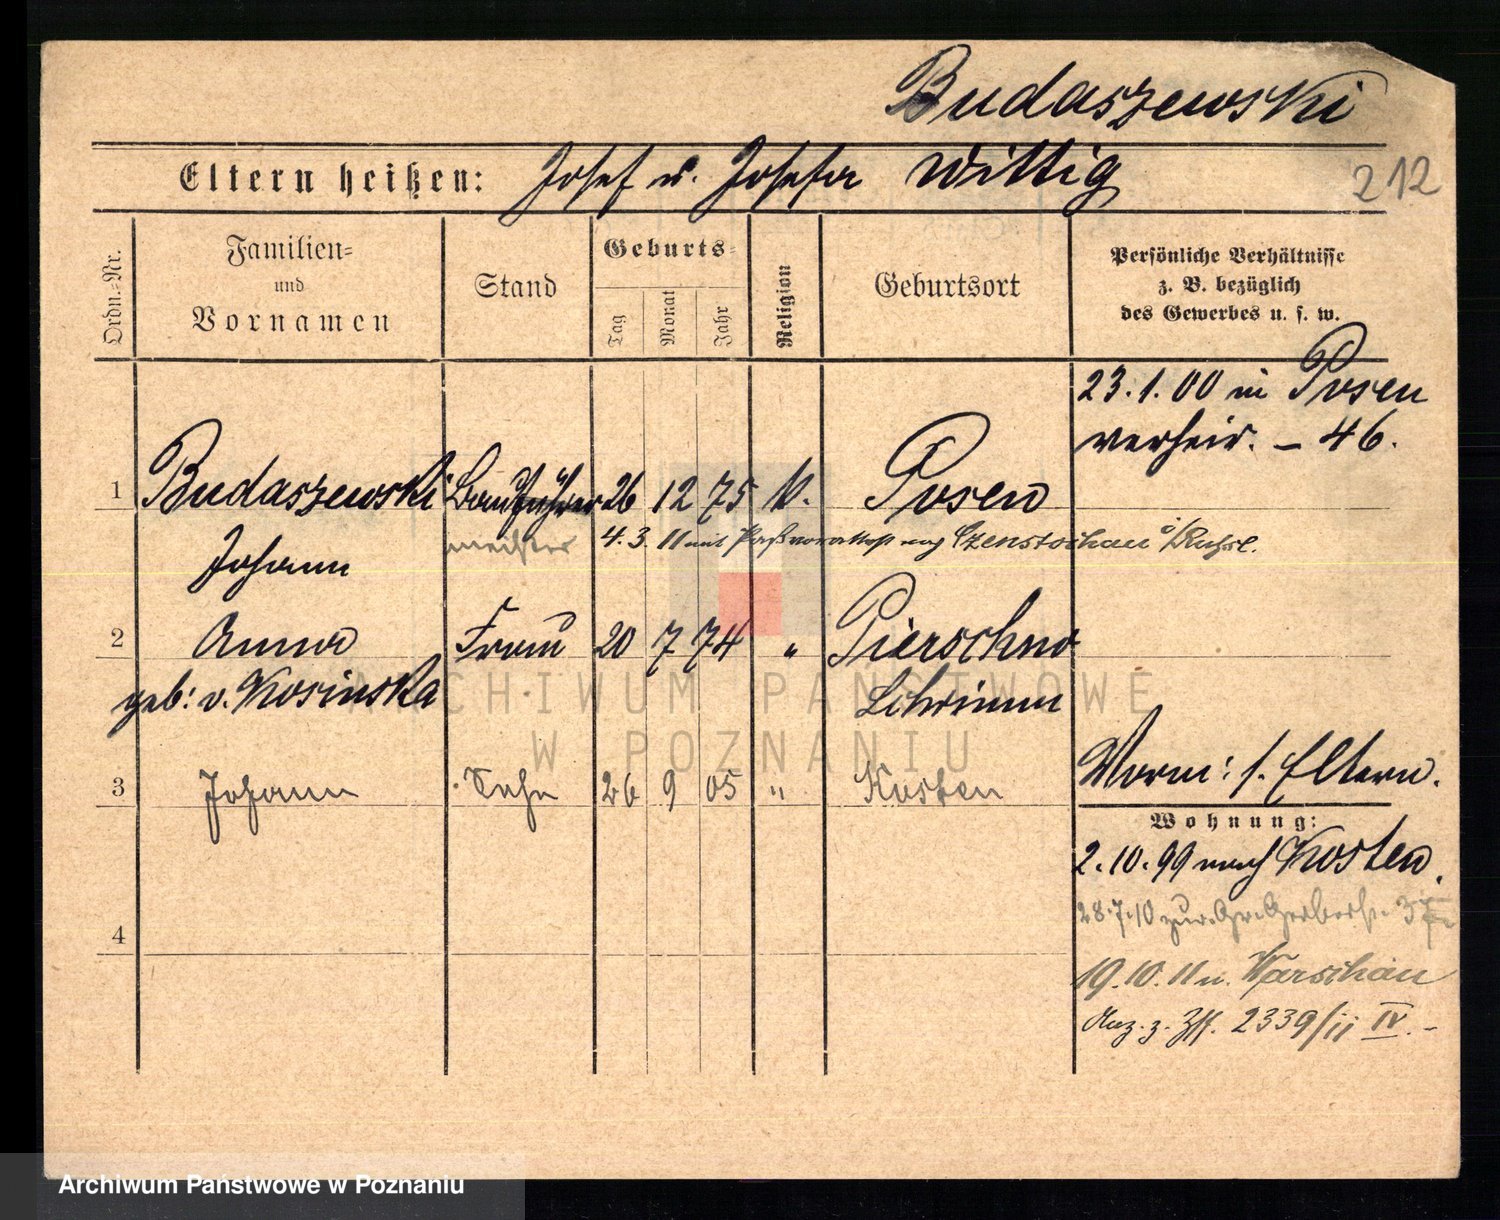 Budaszewski
Eltern heißen: Josef u. Josefa Wittig
212
Ordn.-Nr.
Familien-
und
Vornamen
Stand
Geburts-
Tag
Monat
Jahr
Religion
Geburtsort
Persönliche Verhältnisse
z. B. bezüglich
des Gewerbes u. s. w.
23.1.00 in Posen
verheir. – 46.
1 Budaszewski Bauführer 26 12 75 k. Posen
meister 4.3.11 mit Paßvorattest nach Czenstochau
Johann
2 Anna Frau 20 7 74 " Pierschno
geb: v. Kosinska Schrimm
3 Johann Sohn 26 9 05 " Kosten
Worm: s. Eltern.
Wohnung:
2.10.99 nach Kosten.
28.7.10 zur. Gr. Gerberst. 37
4
19.10.11 n. Warschau
Anz. z. 2339/11 IV. –
ARCHIWUM PAŃSTWOWE
W POZNANIU
Archiwum Państwowe w Poznaniu